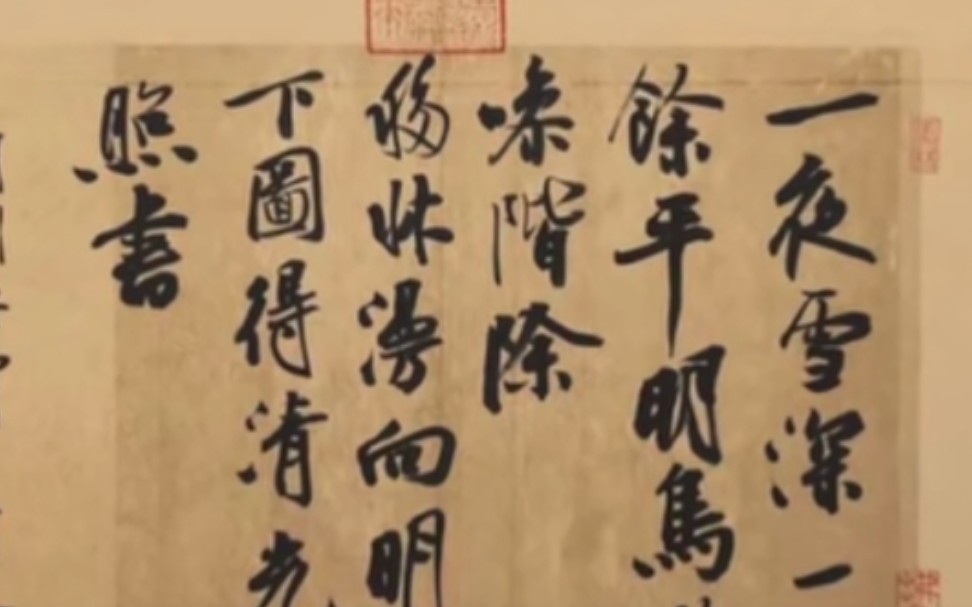 一夜雪深一
餘平明鳥
階除
移牀漫向明
下圖得清光
照書